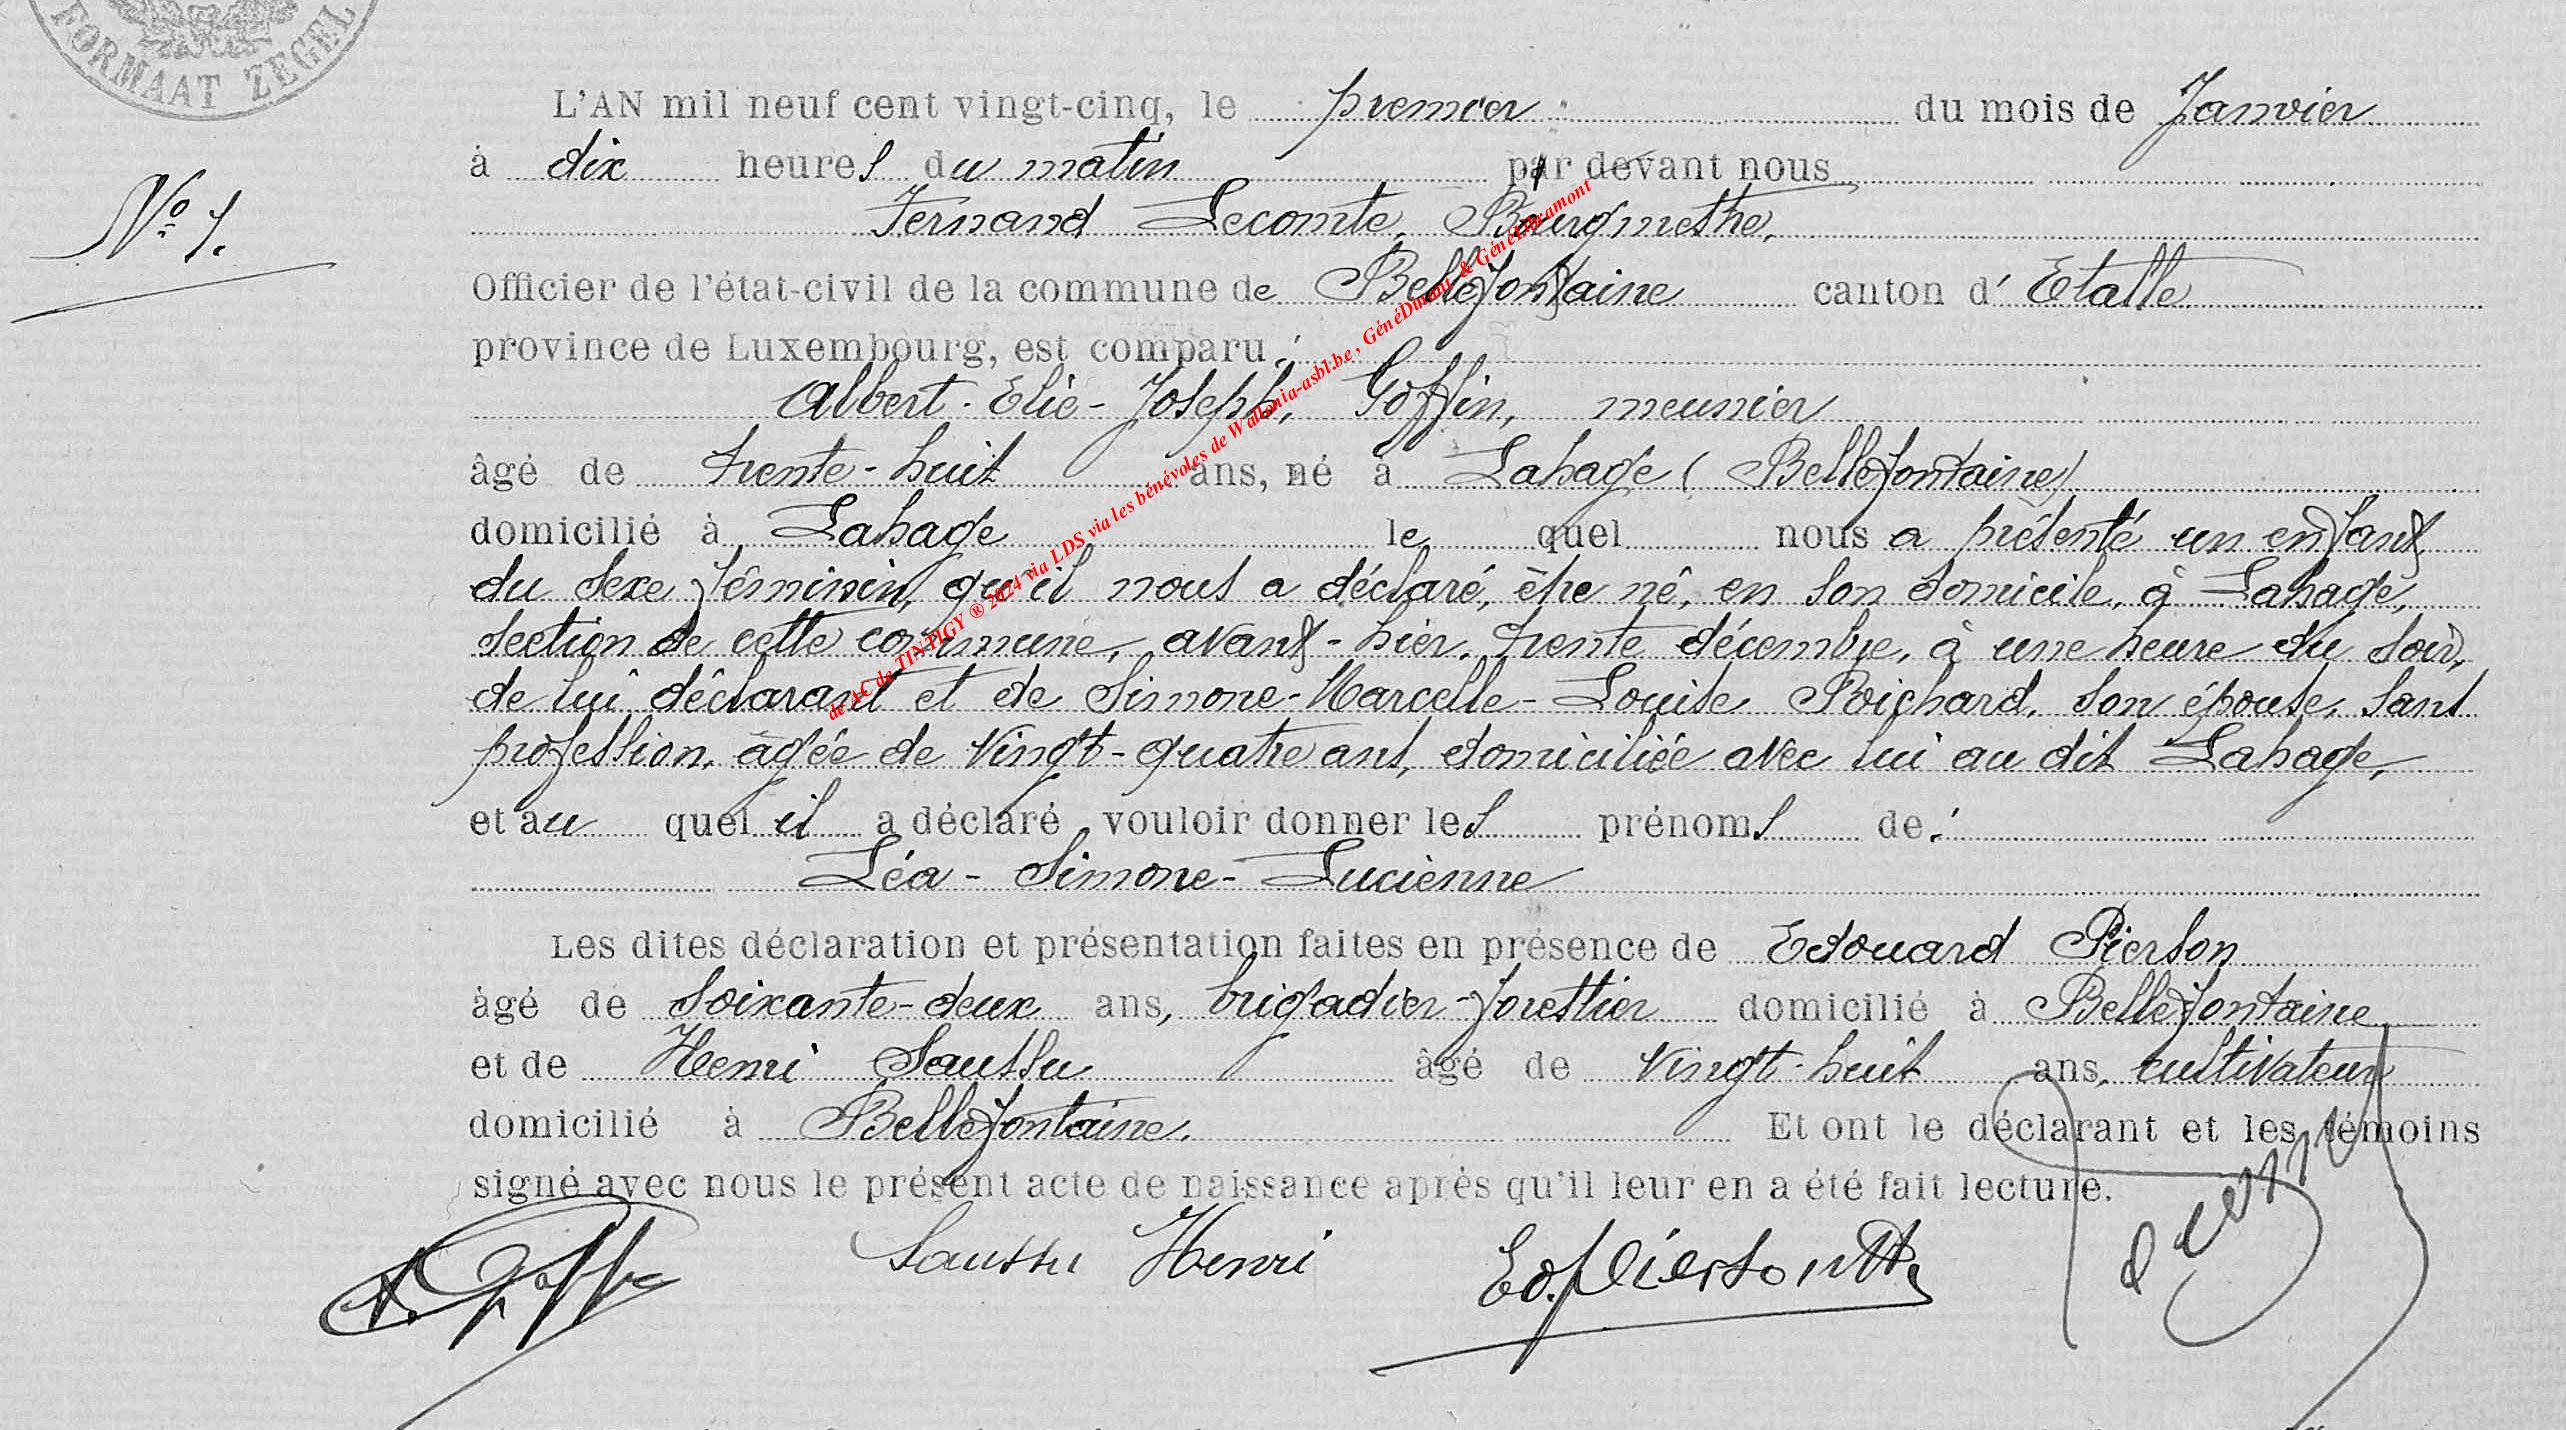 FORMAAT ZEGEL
L'AN mil neuf cent vingt-cinq, le premier du mois de Janvier
à dix heures du matin par devant nous
N° 1.
Fernand Lecomte, Bourgmestre,
Officier de l'état-civil de la commune de Bellefontaine canton d' Etalle
province de Luxembourg, est comparu :
Albert-Elie-Joseph, Goffin, meunier
âgé de trente-huit ans, né à Lahage (Bellefontaine)
domicilié à Lahage le quel nous a présenté un enfant
du sexe féminin, qu'il nous a déclaré, être né, en son domicile, à Lahage,
section de cette commune, avant-hier, trente décembre, à une heure du soir,
de lui déclarant et de Simone-Marcelle-Louise Poichard, son épouse, sans
profession, âgée de vingt-quatre ans, domiciliée avec lui au dit Lahage,
et au quel il a déclaré vouloir donner les prénoms de :
Léa-Simone-Lucienne
Les dites déclaration et présentation faites en présence de Edouard Pierson
âgé de soixante-deux ans, brigadier-forestier domicilié à Bellefontaine
et de Henri Saussu âgé de vingt-huit ans, cultivateur
domicilié à Bellefontaine. Et ont le déclarant et les témoins
signé avec nous le présent acte de naissance après qu'il leur en a été fait lecture.
Saussu Henri Ed. Pierson
de AC de TINTIGY ® 2024 via LDS via les bénévoles de Wallonia-asbl.be, GénéDinant & GénéLibramont